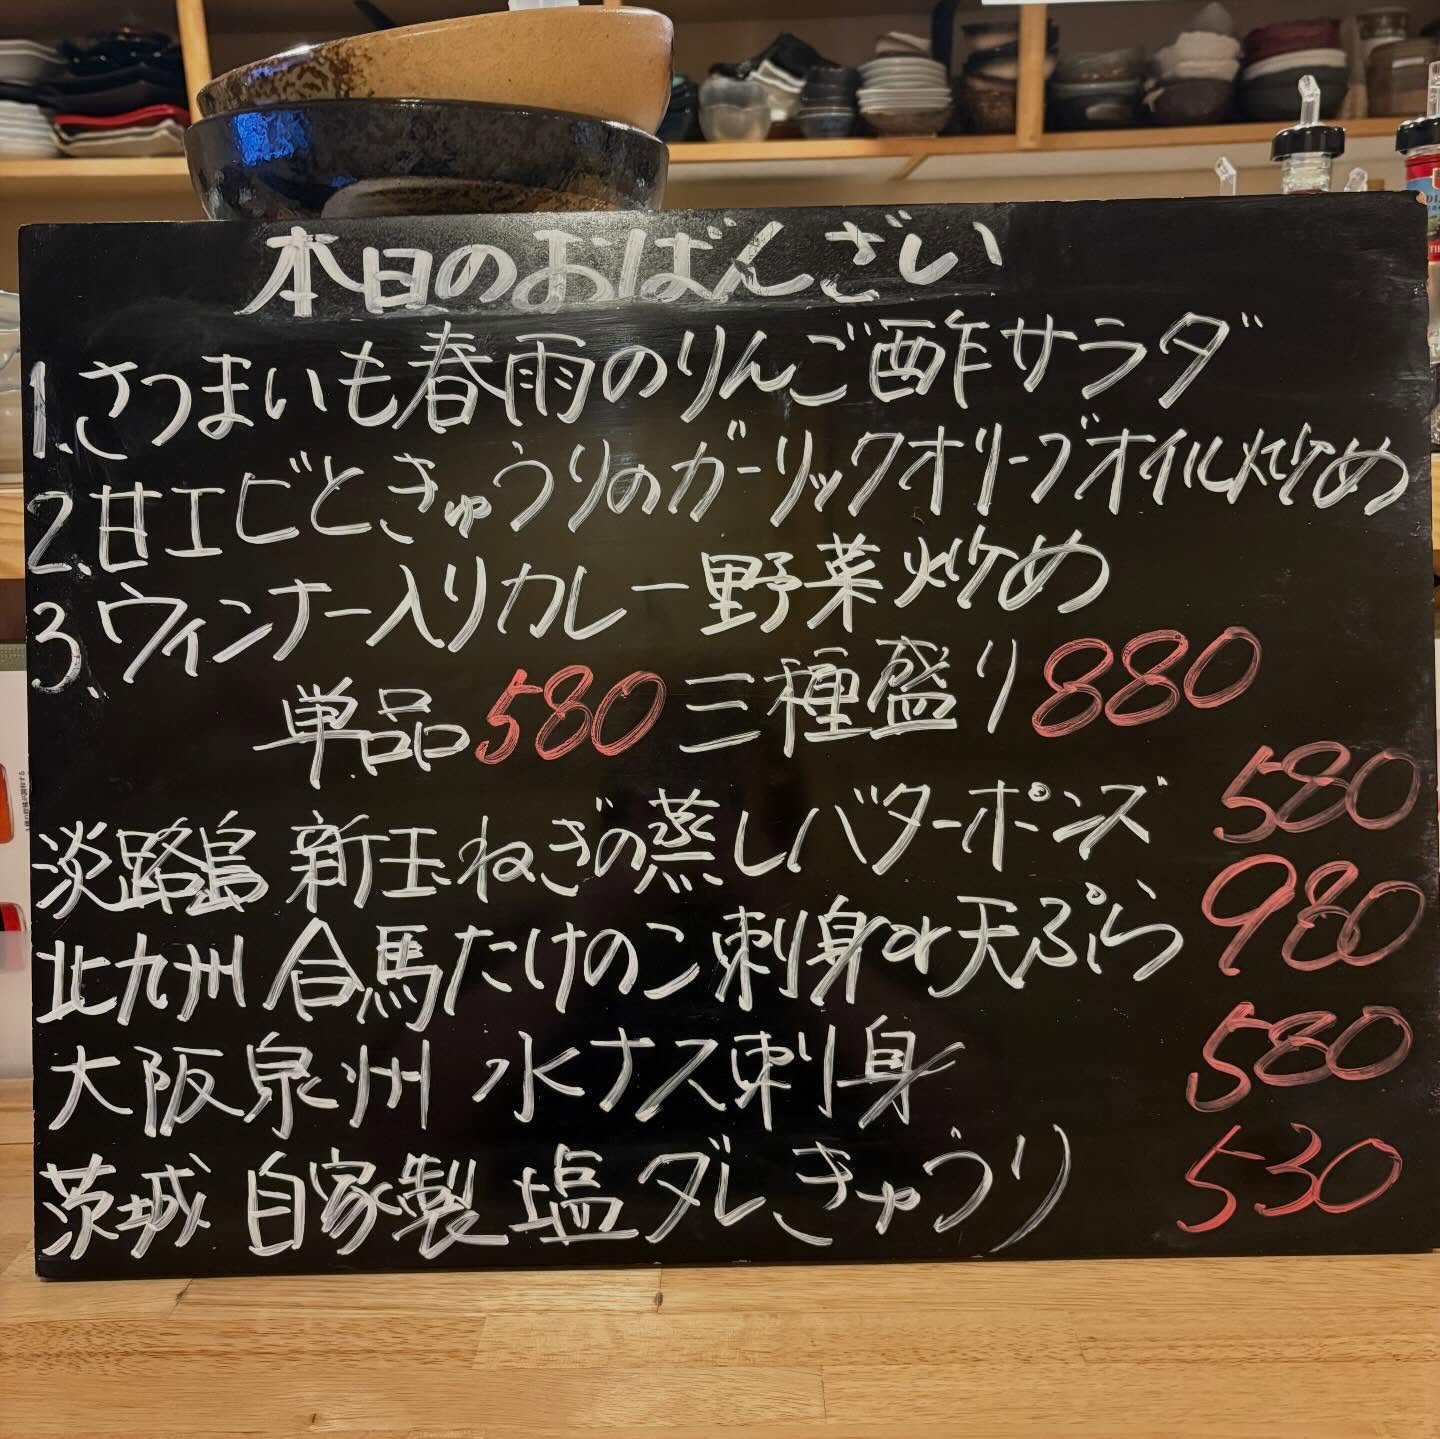 本日のおばんざい
1.さつまいも春雨のりんご酢サラダ
2.甘エビときゅうりのガーリックオリーブオイル炒め
3.ウィンナー入りカレー野菜炒め
単品580 三種盛り880
淡路島 新玉ねぎの蒸しバターポンズ 580
北九州 合馬たけのこ刺身or天ぷら 980
大阪泉州 水ナス刺身 580
茨城 自家製 塩ダレきゅうり 530